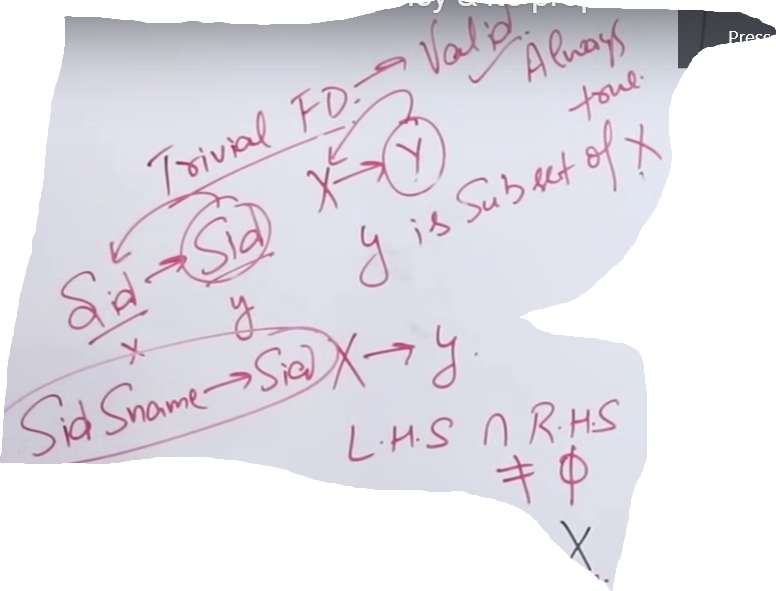 Press
Trivial FD. → Valid. ✓ Always
true.
X → Y
y is Subset of X
Sid → Sid
x y
Sid Sname → Sid X → y.
L.H.S ∩ R.H.S
≠ ϕ
X